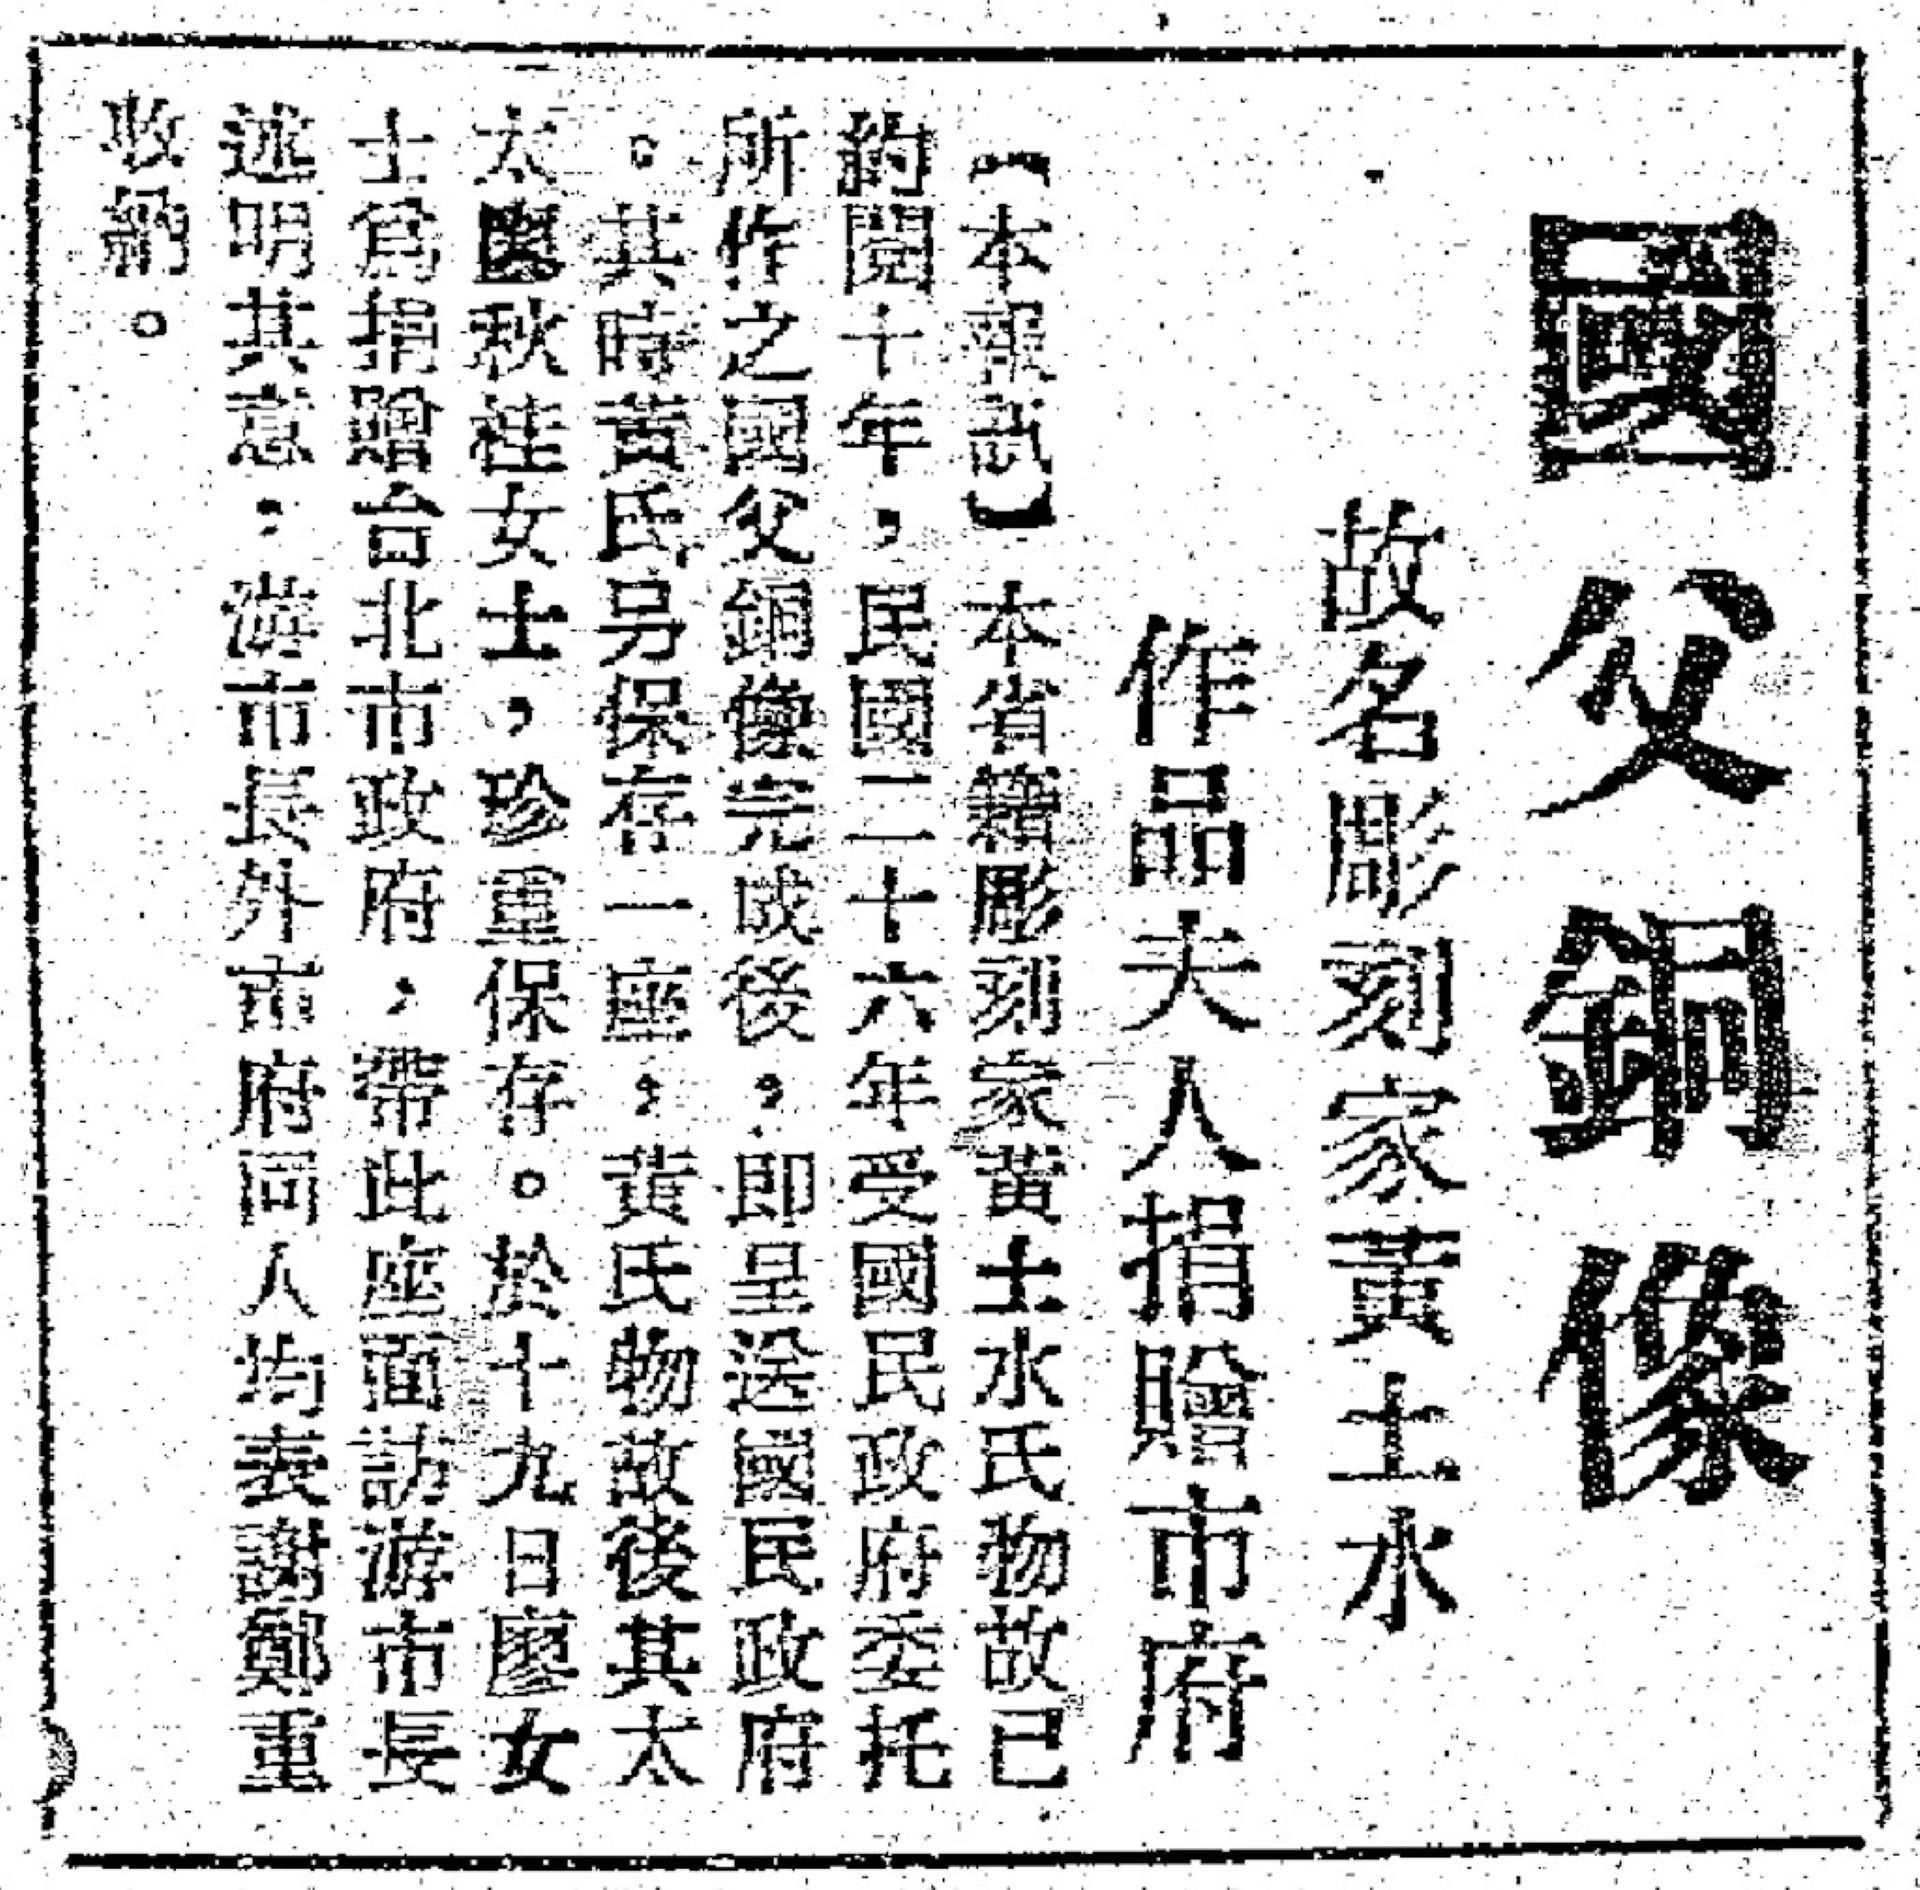 國父銅像
故名彫刻家黃土水
作品夫人捐贈市府
【本報訊】本省籍彫刻家黃土水氏物故已
約閱十年，民國二十六年受國民政府委托
所作之國父銅像完成後，即呈送國民政府
。其時黃氏另保存一座，黃氏物故後其太
太廖秋桂女士，珍重保存。於十九日廖女
士爲捐贈台北市政府，帶此座面訪游市長
述明其意，游市長外市府同人均表謝鄭重
收納。